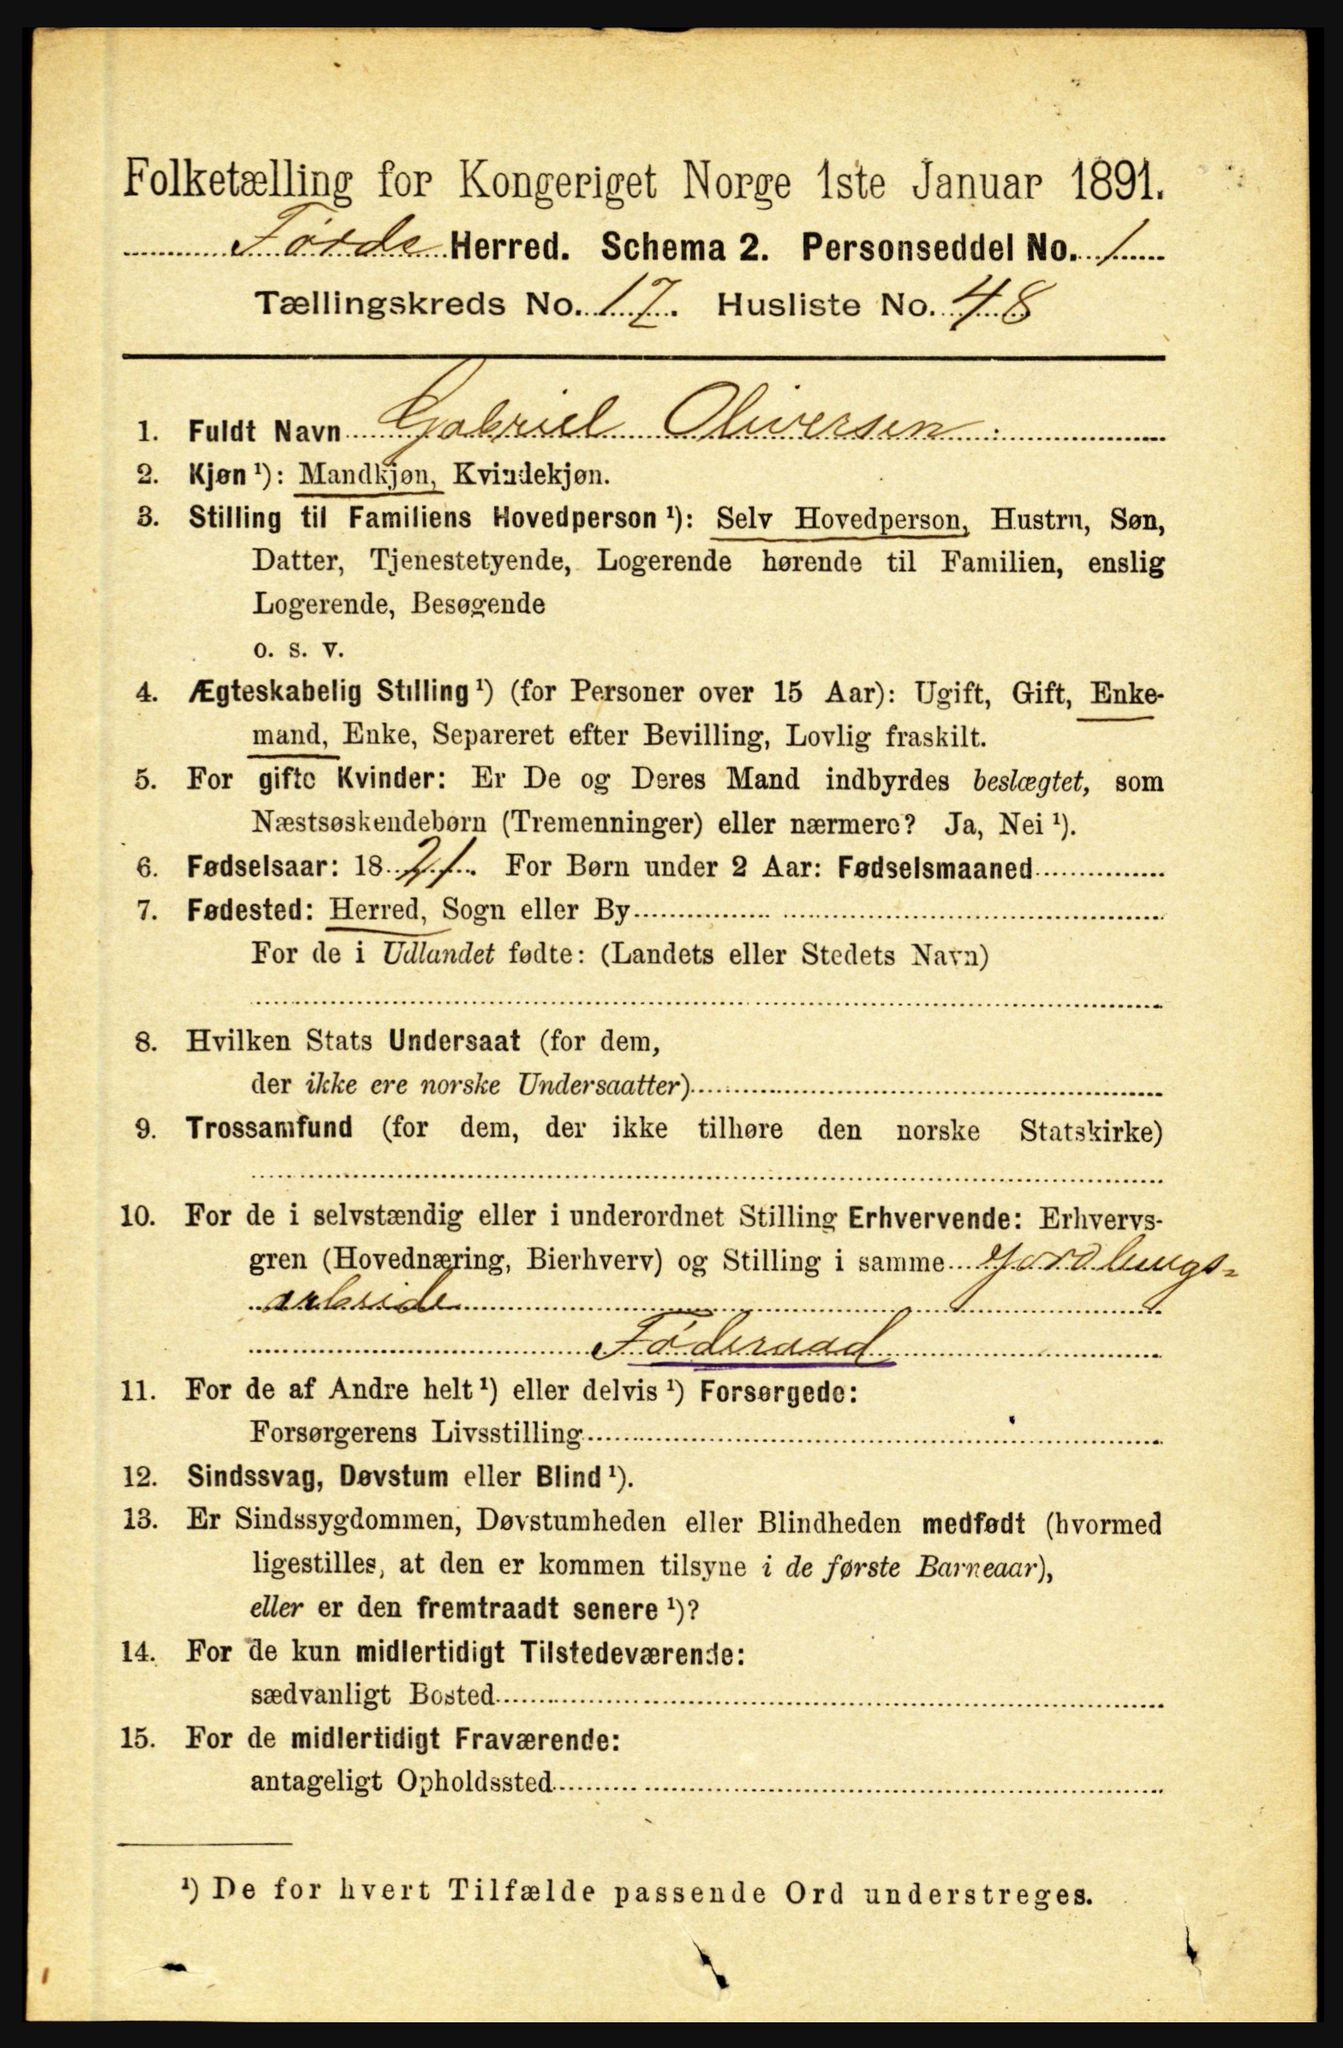 Folketælling for Kongeriget Norge 1ste Januar 1891.
Førde Herred. Schema 2. Personseddel No. 1
Tællingskreds No. 17. Husliste No. 48
1. Fuldt Navn Gabriel Oliversen
2. Kjøn ¹): Mandkjøn, Kvindekjøn.
3. Stilling til Familiens Hovedperson ¹): Selv Hovedperson, Hustru, Søn,
Datter, Tjenestetyende, Logerende hørende til Familien, enslig
Logerende, Besøgende
o. s. v.
4. Ægteskabelig Stilling ¹) (for Personer over 15 Aar): Ugift, Gift, Enke-
mand, Enke, Separeret efter Bevilling, Lovlig fraskilt.
5. For gifte Kvinder: Er De og Deres Mand indbyrdes beslægtet, som
Næstsøskendebørn (Tremenninger) eller nærmere? Ja, Nei ¹).
6. Fødselsaar: 1821. For Børn under 2 Aar: Fødselsmaaned
7. Fødested: Herred, Sogn eller By
For de i Udlandet fødte: (Landets eller Stedets Navn)
8. Hvilken Stats Undersaat (for dem,
der ikke ere norske Undersaatter)
9. Trossamfund (for dem, der ikke tilhøre den norske Statskirke)
10. For de i selvstændig eller i underordnet Stilling Erhvervende: Erhvervs-
gren (Hovednæring, Bierhverv) og Stilling i samme Jordbrugs-
arbeide
Føderaad
11. For de af Andre helt ¹) eller delvis ¹) Forsørgede:
Forsørgerens Livsstilling
12. Sindssvag, Døvstum eller Blind ¹).
13. Er Sindssygdommen, Døvstumheden eller Blindheden medfødt (hvormed
ligestilles, at den er kommen tilsyne i de første Barneaar),
eller er den fremtraadt senere ¹)?
14. For de kun midlertidigt Tilstedeværende:
sædvanligt Bosted
15. For de midlertidigt Fraværende:
antageligt Opholdssted
¹) De for hvert Tilfælde passende Ord understreges.